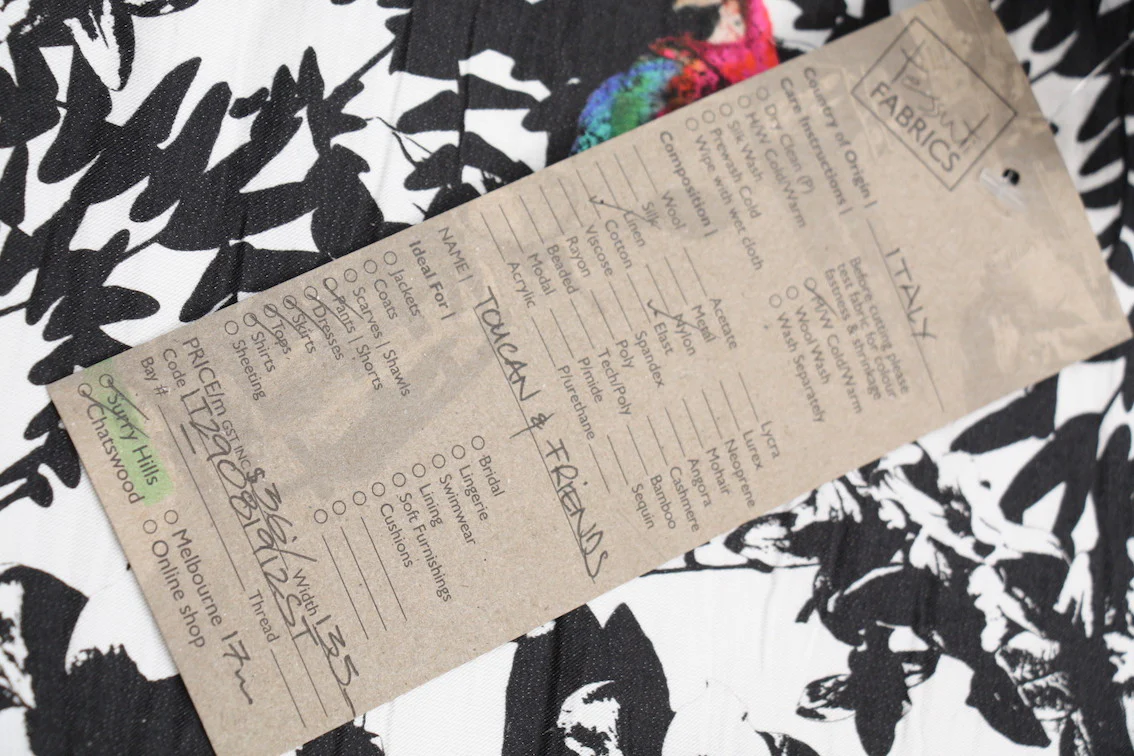 Tessuti
FABRICS
Country of Origin | ITALY
Care Instructions |
Dry Clean (P)
H/W Cold/Warm
Silk Wash
Prewash Cold
Wipe with wet cloth
Before cutting please
test fabric for colour
fastness & shrinkage
M/W Cold/Warm
Wool Wash
Wash Separately
Composition |
Wool
Silk
Linen
Cotton
Viscose
Rayon
Beaded
Modal
Acrylic
Acetate
Metal
Nylon
Elast
Spandex
Poly
Tech/Poly
P/mide
P/urethane
Lycra
Lurex
Neoprene
Mohair
Angora
Cashmere
Bamboo
Sequin
NAME | TOUCAN & FRIENDS
Ideal For |
Jackets
Coats
Scarves | Shawls
Pants | Shorts
Dresses
Skirts
Tops
Shirts
Sheeting
Bridal
Lingerie
Swimwear
Lining
Soft Furnishings
Cushions
PRICE/m GST INC $36/ Width 135
Code LT29081912ST
Bay # Thread
Surry Hills
Chatswood
Melbourne 17m
Online shop